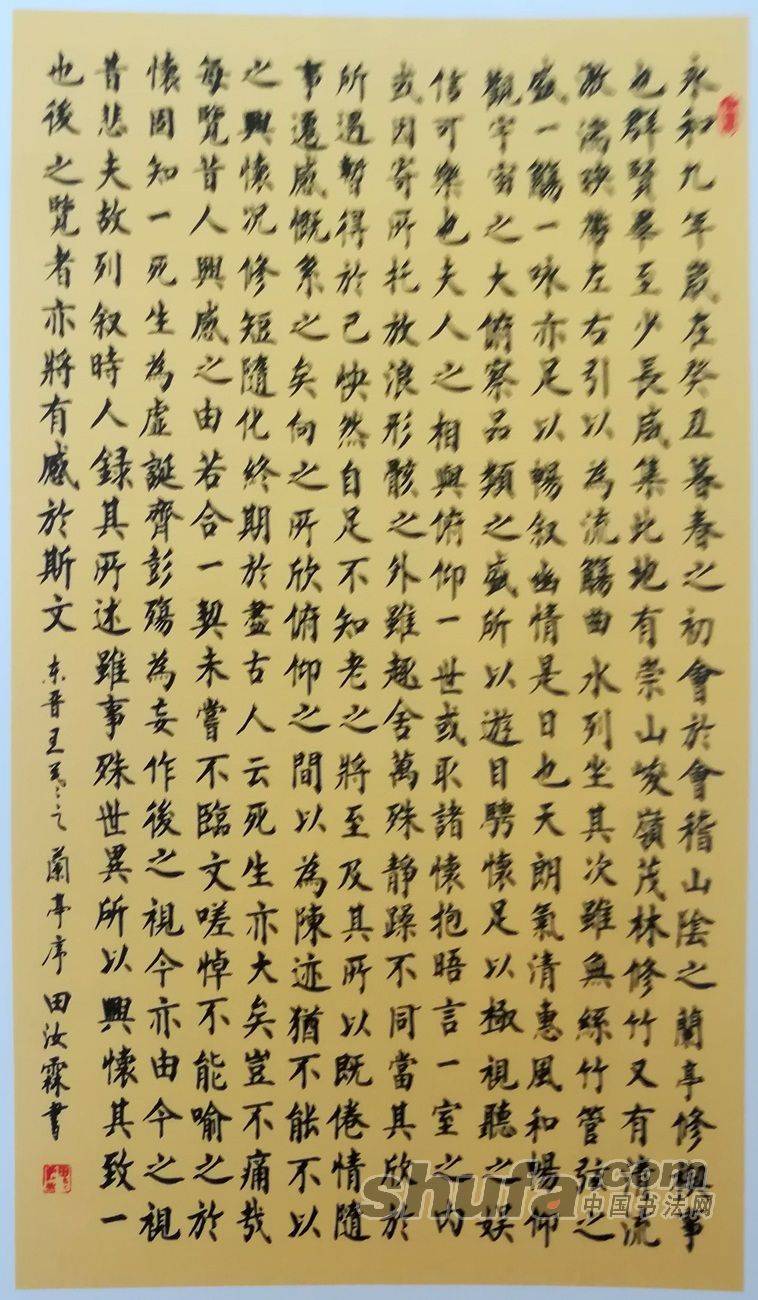 永和九年歲在癸丑暮春之初會於會稽山陰之蘭亭修禊事
也群賢畢至少長咸集此地有崇山峻嶺茂林修竹又有清流
激湍映帶左右引以為流觴曲水列坐其次雖無絲竹管弦之
盛一觴一咏亦足以暢叙幽情是日也天朗氣清惠風和暢仰
觀宇宙之大俯察品類之盛所以遊目騁懷足以極視聽之娱
信可樂也夫人之相與俯仰一世或取諸懷抱晤言一室之内
或因寄所托放浪形骸之外雖趣舍萬殊静躁不同當其欣於
所遇暫得於己快然自足不知老之將至及其所以既倦情隨
事遷感慨系之矣向之所欣俯仰之間以為陳迹猶不能不以
之興懷况修短隨化終期於盡古人云死生亦大矣豈不痛哉
每覽昔人興感之由若合一契未嘗不臨文嗟悼不能喻之於
懷固知一死生為虛誕齊彭殤為妄作後之視今亦由今之視
昔悲夫故列叙時人録其所述雖事殊世異所以興懷其致一
也後之覽者亦將有感於斯文 东晋王羲之蘭亭序 田汝霖書
shufa.com
中国书法网